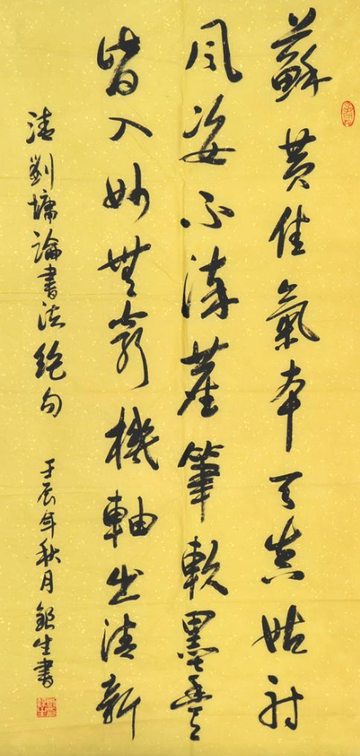 蘇黃佳氣本天真姑射
風姿不涴塵筆軟墨豐
皆入妙無窮機軸出清新
清劉墉論書法絕句
壬辰年秋月銀生書